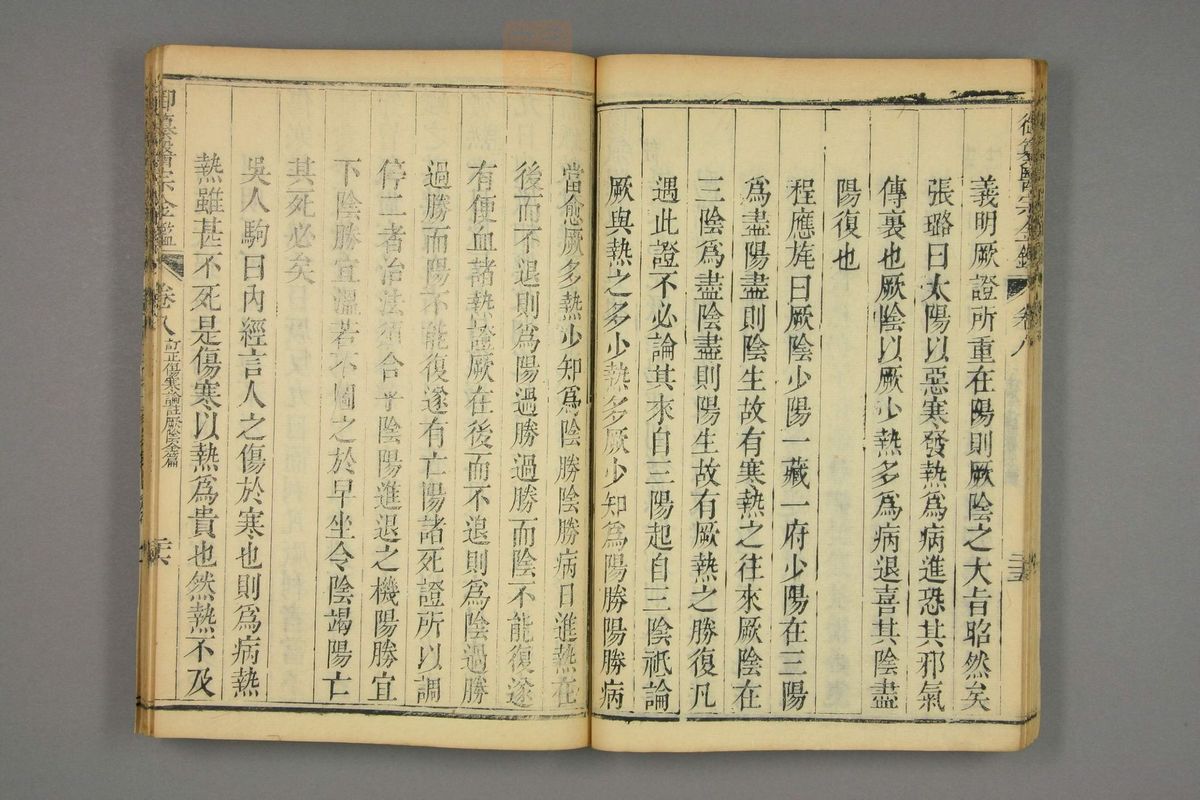 御纂醫宗金鑑 卷八
義明厥證所重在陽則厥陰之大旨昭然矣
張璐曰太陽以惡寒發熱爲病進恐其邪氣
傳裏也厥陰以厥少熱多爲病退喜其陰盡
陽復也
程應旄曰厥陰少陽一藏一府少陽在三陽
爲盡陽盡則陰生故有寒熱之往來厥陰在
三陰爲盡陰盡則陽生故有厥熱之勝復凡
遇此證不必論其來自三陽起自三陰祇論
厥與熱之多少熱多厥少知爲陽勝陽勝病
當愈厥多熱少知爲陰勝陰勝病日進熱在
後而不退則爲陽過勝過勝而陰不能復遂
有便血諸熱證厥在後而不退則爲陰過勝
過勝而陽不能復遂有亡陽諸死證所以調
停二者治法須合乎陰陽進退之機陽勝宜
下陰勝宜溫若不圖之於早坐令陰竭陽亡
其死必矣
吳人駒曰內經言人之傷於寒也則爲病熱
熱雖甚不死是傷寒以熱爲貴也然熱不及
御纂醫宗金鑑 卷八 訂正傷寒論註厥陰全篇 二六